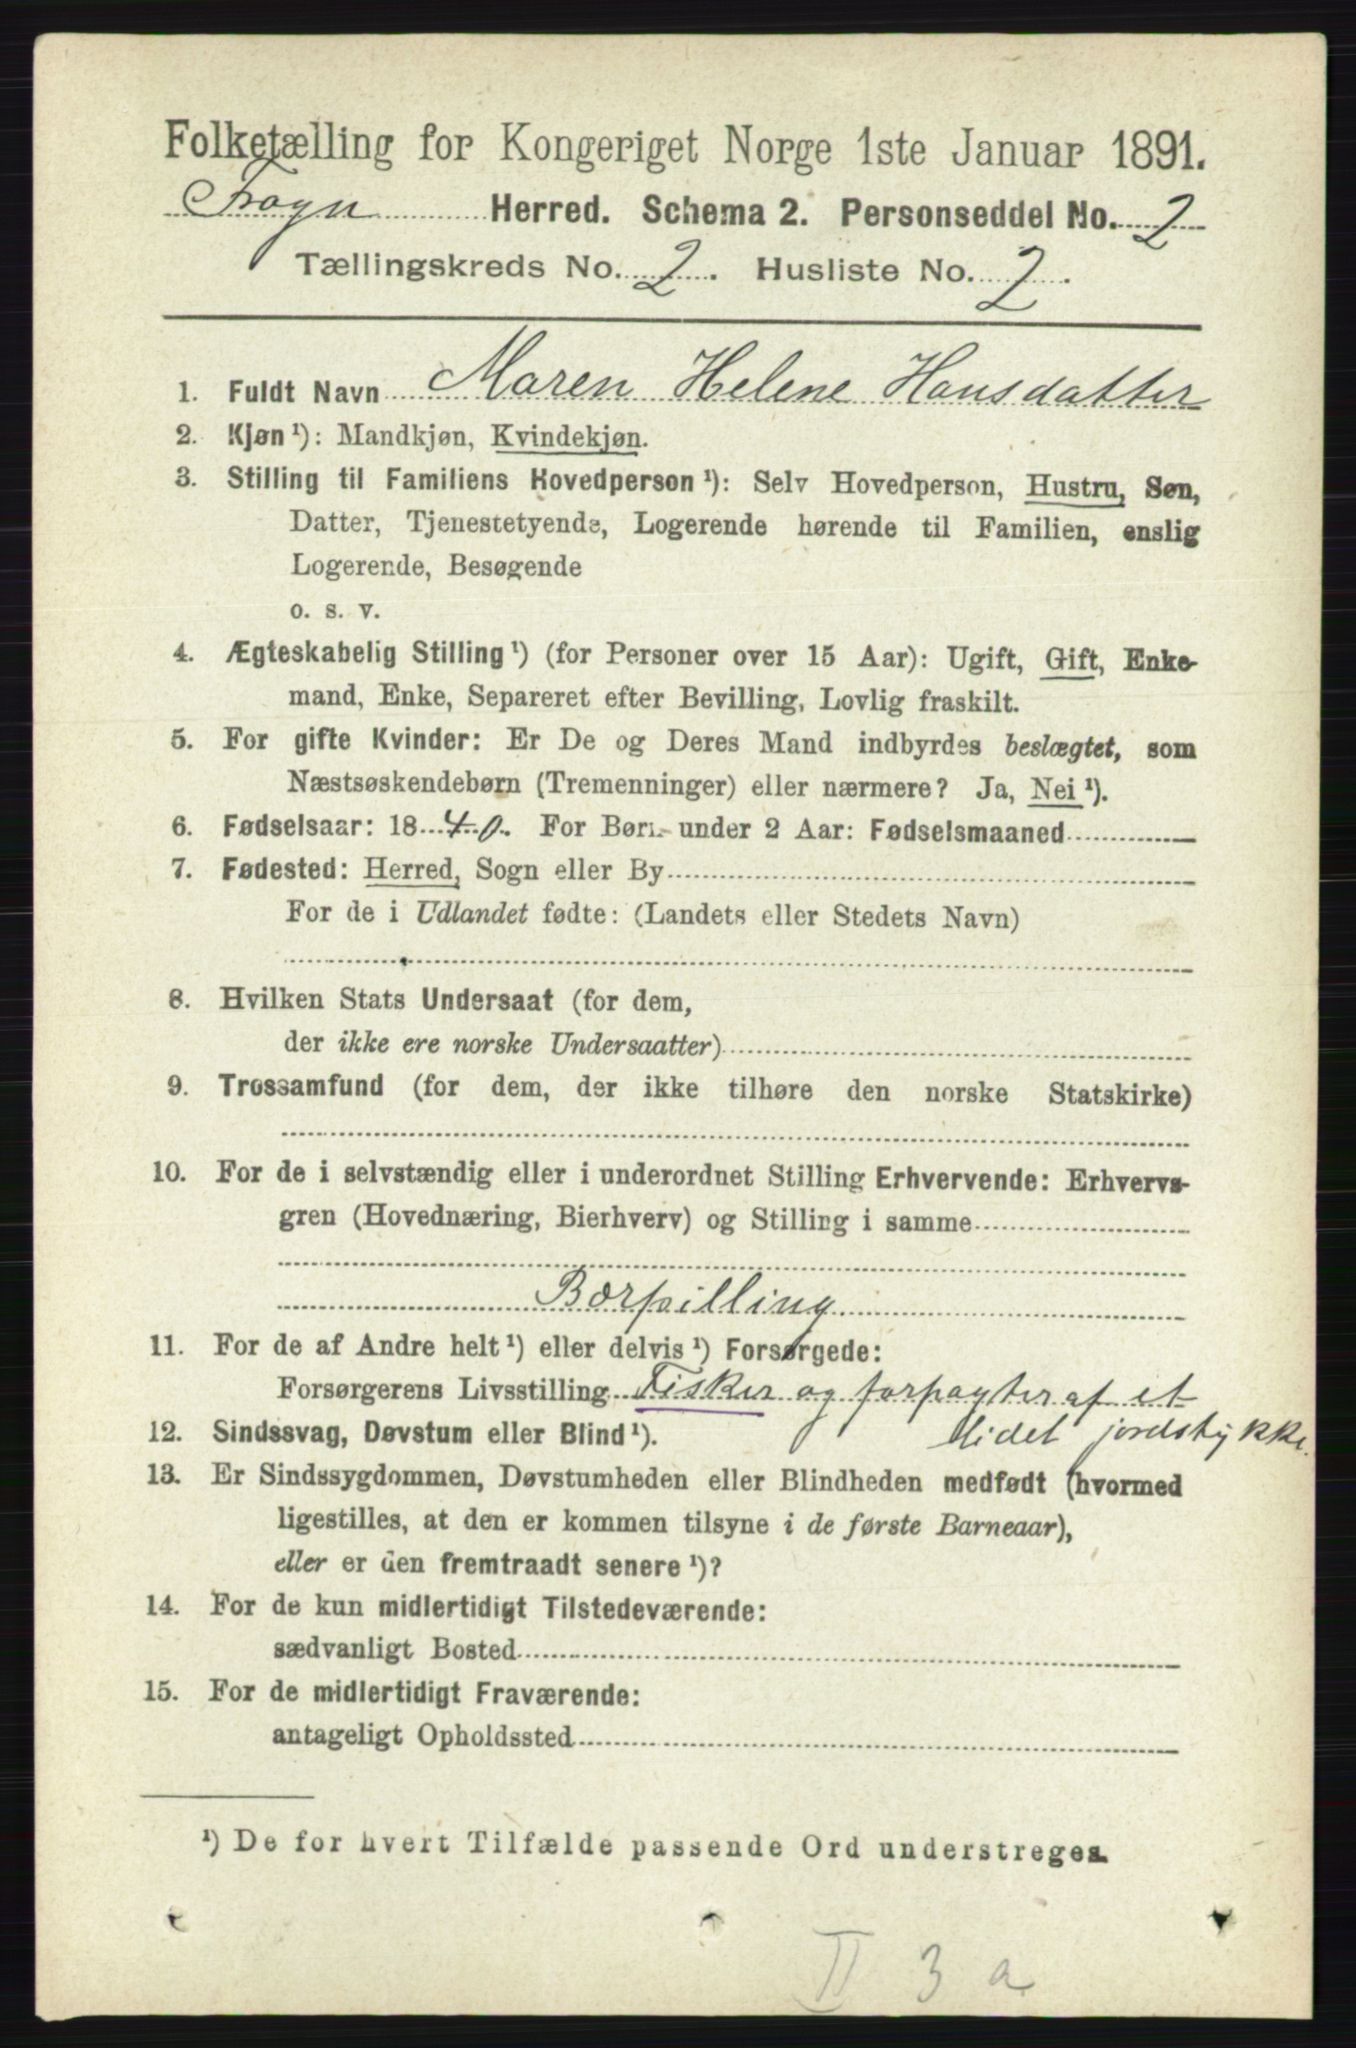 Folketælling for Kongeriget Norge 1ste Januar 1891.
Frogn Herred. Schema 2. Personseddel No. 2
Tællingskreds No. 2. Husliste No. 2.
1. Fuldt Navn Maren Helene Hansdatter
2. Kjøn ¹): Mandkjøn, Kvindekjøn.
3. Stilling til Familiens Hovedperson ¹): Selv Hovedperson, Hustru, Søn,
Datter, Tjenestetyende, Logerende hørende til Familien, enslig
Logerende, Besøgende
o. s. v.
4. Ægteskabelig Stilling ¹) (for Personer over 15 Aar): Ugift, Gift, Enke-
mand, Enke, Separeret efter Bevilling, Lovlig fraskilt.
5. For gifte Kvinder: Er De og Deres Mand indbyrdes beslægtet, som
Næstsøskendebørn (Tremenninger) eller nærmere? Ja, Nei ¹).
6. Fødselsaar: 1840. For Børn under 2 Aar: Fødselsmaaned
7. Fødested: Herred, Sogn eller By
For de i Udlandet fødte: (Landets eller Stedets Navn)
8. Hvilken Stats Undersaat (for dem,
der ikke ere norske Undersaatter)
9. Trossamfund (for dem, der ikke tilhøre den norske Statskirke)
10. For de i selvstændig eller i underordnet Stilling Erhvervende: Erhvervs-
gren (Hovednæring, Bierhverv) og Stilling i samme
Bærpilling
11. For de af Andre helt ¹) eller delvis ¹) Forsørgede:
Forsørgerens Livsstilling Fisker og forpagter af et
lidet jordstykke.
12. Sindssvag, Døvstum eller Blind ¹).
13. Er Sindssygdommen, Døvstumheden eller Blindheden medfødt (hvormed
ligestilles, at den er kommen tilsyne i de første Barneaar),
eller er den fremtraadt senere ¹)?
14. For de kun midlertidigt Tilstedeværende:
sædvanligt Bosted
15. For de midlertidigt Fraværende:
antageligt Opholdssted
¹) De for hvert Tilfælde passende Ord understreges.
II 3 a